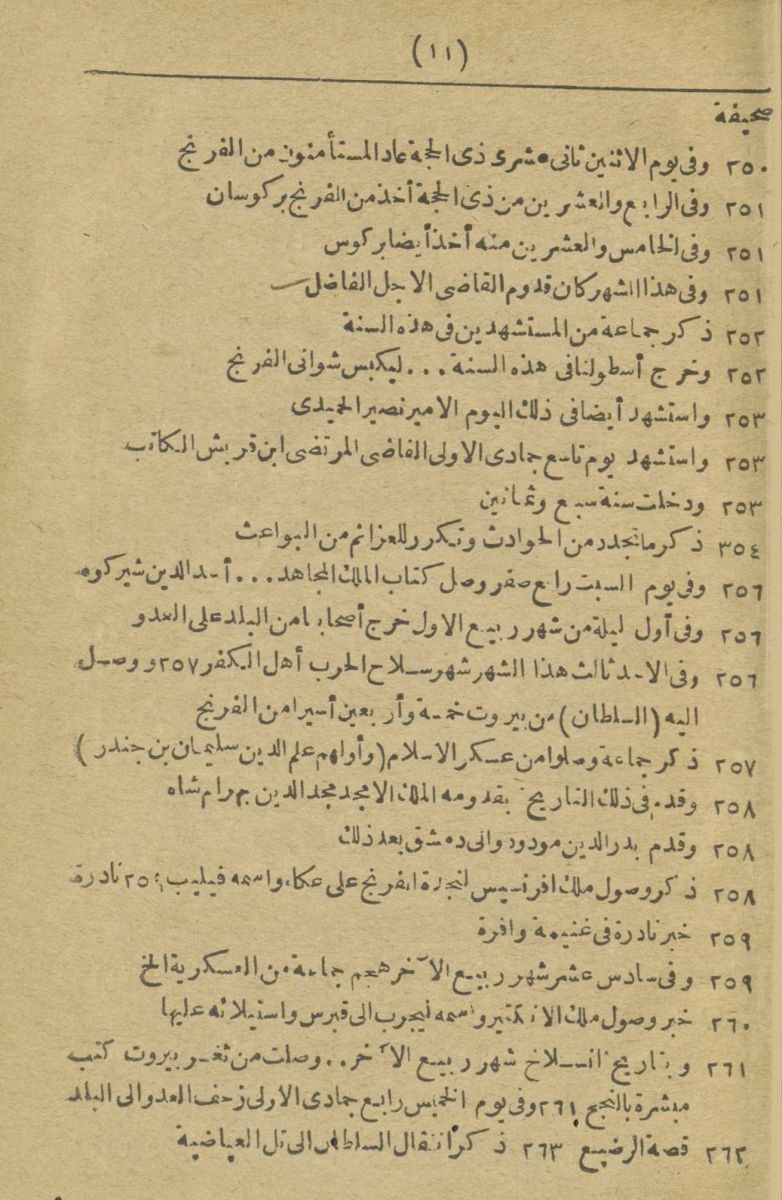 (١١)
صحيفة
٢٥٠ وفى يوم الاثنين ثانى عشرى ذى الحجة عاد المستأمنون من الفرنج
٢٥١ وفى الرابع والعشرين من ذى الحجة أخذ من الفرنج بركوسان
٢٥١ وفى الخامس والعشرين منه أخذ أيضا بركوس
٢٥١ وفى هذا الشهر كان قدوم القاضى الاجل الفاضل
٢٥٢ ذكر جماعة من المستشهدين فى هذه السنة
٢٥٢ وخرج أسطولنا فى هذه السنة ... ليكبس شوانى الفرنج
٢٥٣ واستشهد أيضا فى ذلك اليوم الامير نصير الحميدى
٢٥٣ واستشهد يوم تاسع جمادى الاولى القاضى المرتضى ابن قريش الكاتب
٢٥٣ ودخلت سنة سبع وثمانين
٣٥٤ ذكر ما تجدد من الحوادث وتكرر للعزائم من البواعث
٢٥٦ وفى يوم السبت رابع صفر وصل كتاب الملك المجاهد ... أسد الدين شيركوه
٢٥٦ وفى أول ليلة من شهر ربيع الاول خرج أصحابنا من البلد على العدو
٢٥٦ وفى الاحد ثالث هذا الشهر شهر سلاح الحرب أهل الكفر ٢٥٧ ووصل
اليه (السلطان) من بيروت خمسة وأربعين أسيرا من الفرنج
٢٥٧ ذكر جماعة وصلوا من عسكر الاسلام (وأولهم علم الدين سليمان بن جندر)
٢٥٨ وقدم فى ذلك التاريخ بقدومه الملك الامجد مجد الدين بهرام شاه
٢٥٨ وقدم بدر الدين مودود والى دمشق بعد ذلك
٢٥٨ ذكر وصول ملك افرنسيس لنجدة الفرنج على عكاء واسمه فيليب نادرة
٢٥٩ خبر نادرة فى غنيمة وافرة
٢٥٩ وفى سادس عشر شهر ربيع الآخر هجم جماعة من العسكرية الخ
٢٦٠ خبر وصول ملك الانكتير واسمه ليجرب الى قبرس واستيلائه عليها
٢٦١ وبتاريخ انسلاخ شهر ربيع الآخر .. وصلت من ثغر بيروت كتب
مبشرة بالنجح ٢٦١ وفى يوم الخميس رابع جمادى الاولى زحف العدو الى البلد
٢٦٢ قصة الرضيع ٢٦٣ ذكر انتقال السلطان الى تل العياضية